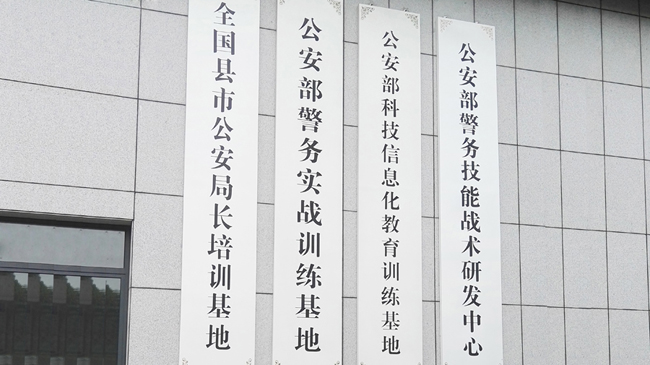 全国县市公安局长培训基地
公安部警务实战训练基地
公安部科技信息化教育训练基地
公安部警务技能战术研发中心